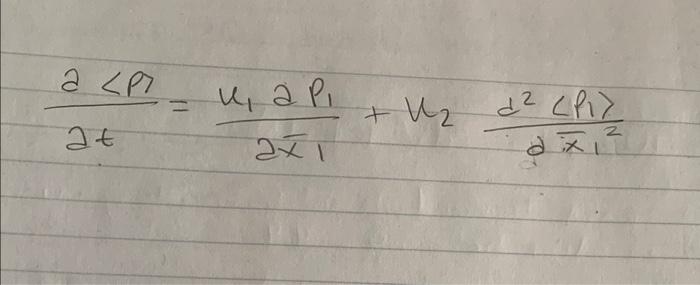 ∂ <P> / ∂t = u₁ ∂ P₁ / ∂x̄₁ + u₂ d² <P₁> / ∂x̄₁²